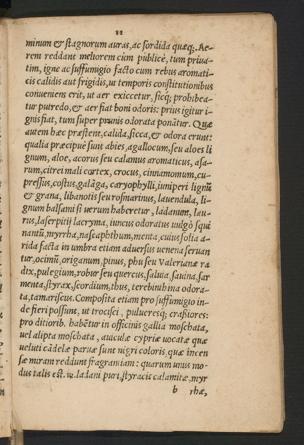 11
minum & stagnorum auras, ac sordida quæq;. Ae-
rem reddant meliorem cùm publicè, tum priua-
tim, igne ac suffumigio facto cum rebus aromati-
cis calidis aut frigidis, ut temporis constitutionibus
conueniens erit, ut aer exiccetur, sicq; prohibea-
tur putredo, & aer fiat boni odoris: prius igitur i-
gnis fiat, tum super prunis odorata ponãtur. Quæ
autem hæc præstent, calida, sicca, & odora erunt:
qualia præcipuè sunt abies, agallocum, seu aloes li
gnum, aloe, acorus seu calamus aromaticus, asa-
rum, citrei mali cortex, crocus, cinnamomum, cu-
pressus, costus, galãga, caryophylli, iuniperi lignũ
& grana, libanotis seu rosmarinus, lauendula, li-
gnum balsami si uerum haberetur, ladanum, lau-
rus, laserpitij lacryma, iuncus odoratus uulgò squi
nantũ, myrrha, nascaphthum, menta, cuius folia a-
rida facta in umbra etiam aduersus uenena seruan
tur, ocimũ, origanum, pinus, phu seu Valerianæ ra
dix, pulegium, robur seu quercus, saluia, sauina, sar
menta, styrax, scordium, thus, terebinthina odora-
ta, tamariscus. Composita etiam pro suffumigio in-
de fieri possunt, ut trocisci, pulueresq; crassiores:
pro ditiorib. habẽtur in officinis gallia moschata,
uel alipta moschata, auiculæ cypriæ uocatæ quæ
ueluti cãdelæ paruæ sunt nigri coloris, quæ incen
sæ miram reddunt fragrantiam: quarum unus mo-
dus talis est. ladani puri, styracis calamitæ, myr
b rhæ,